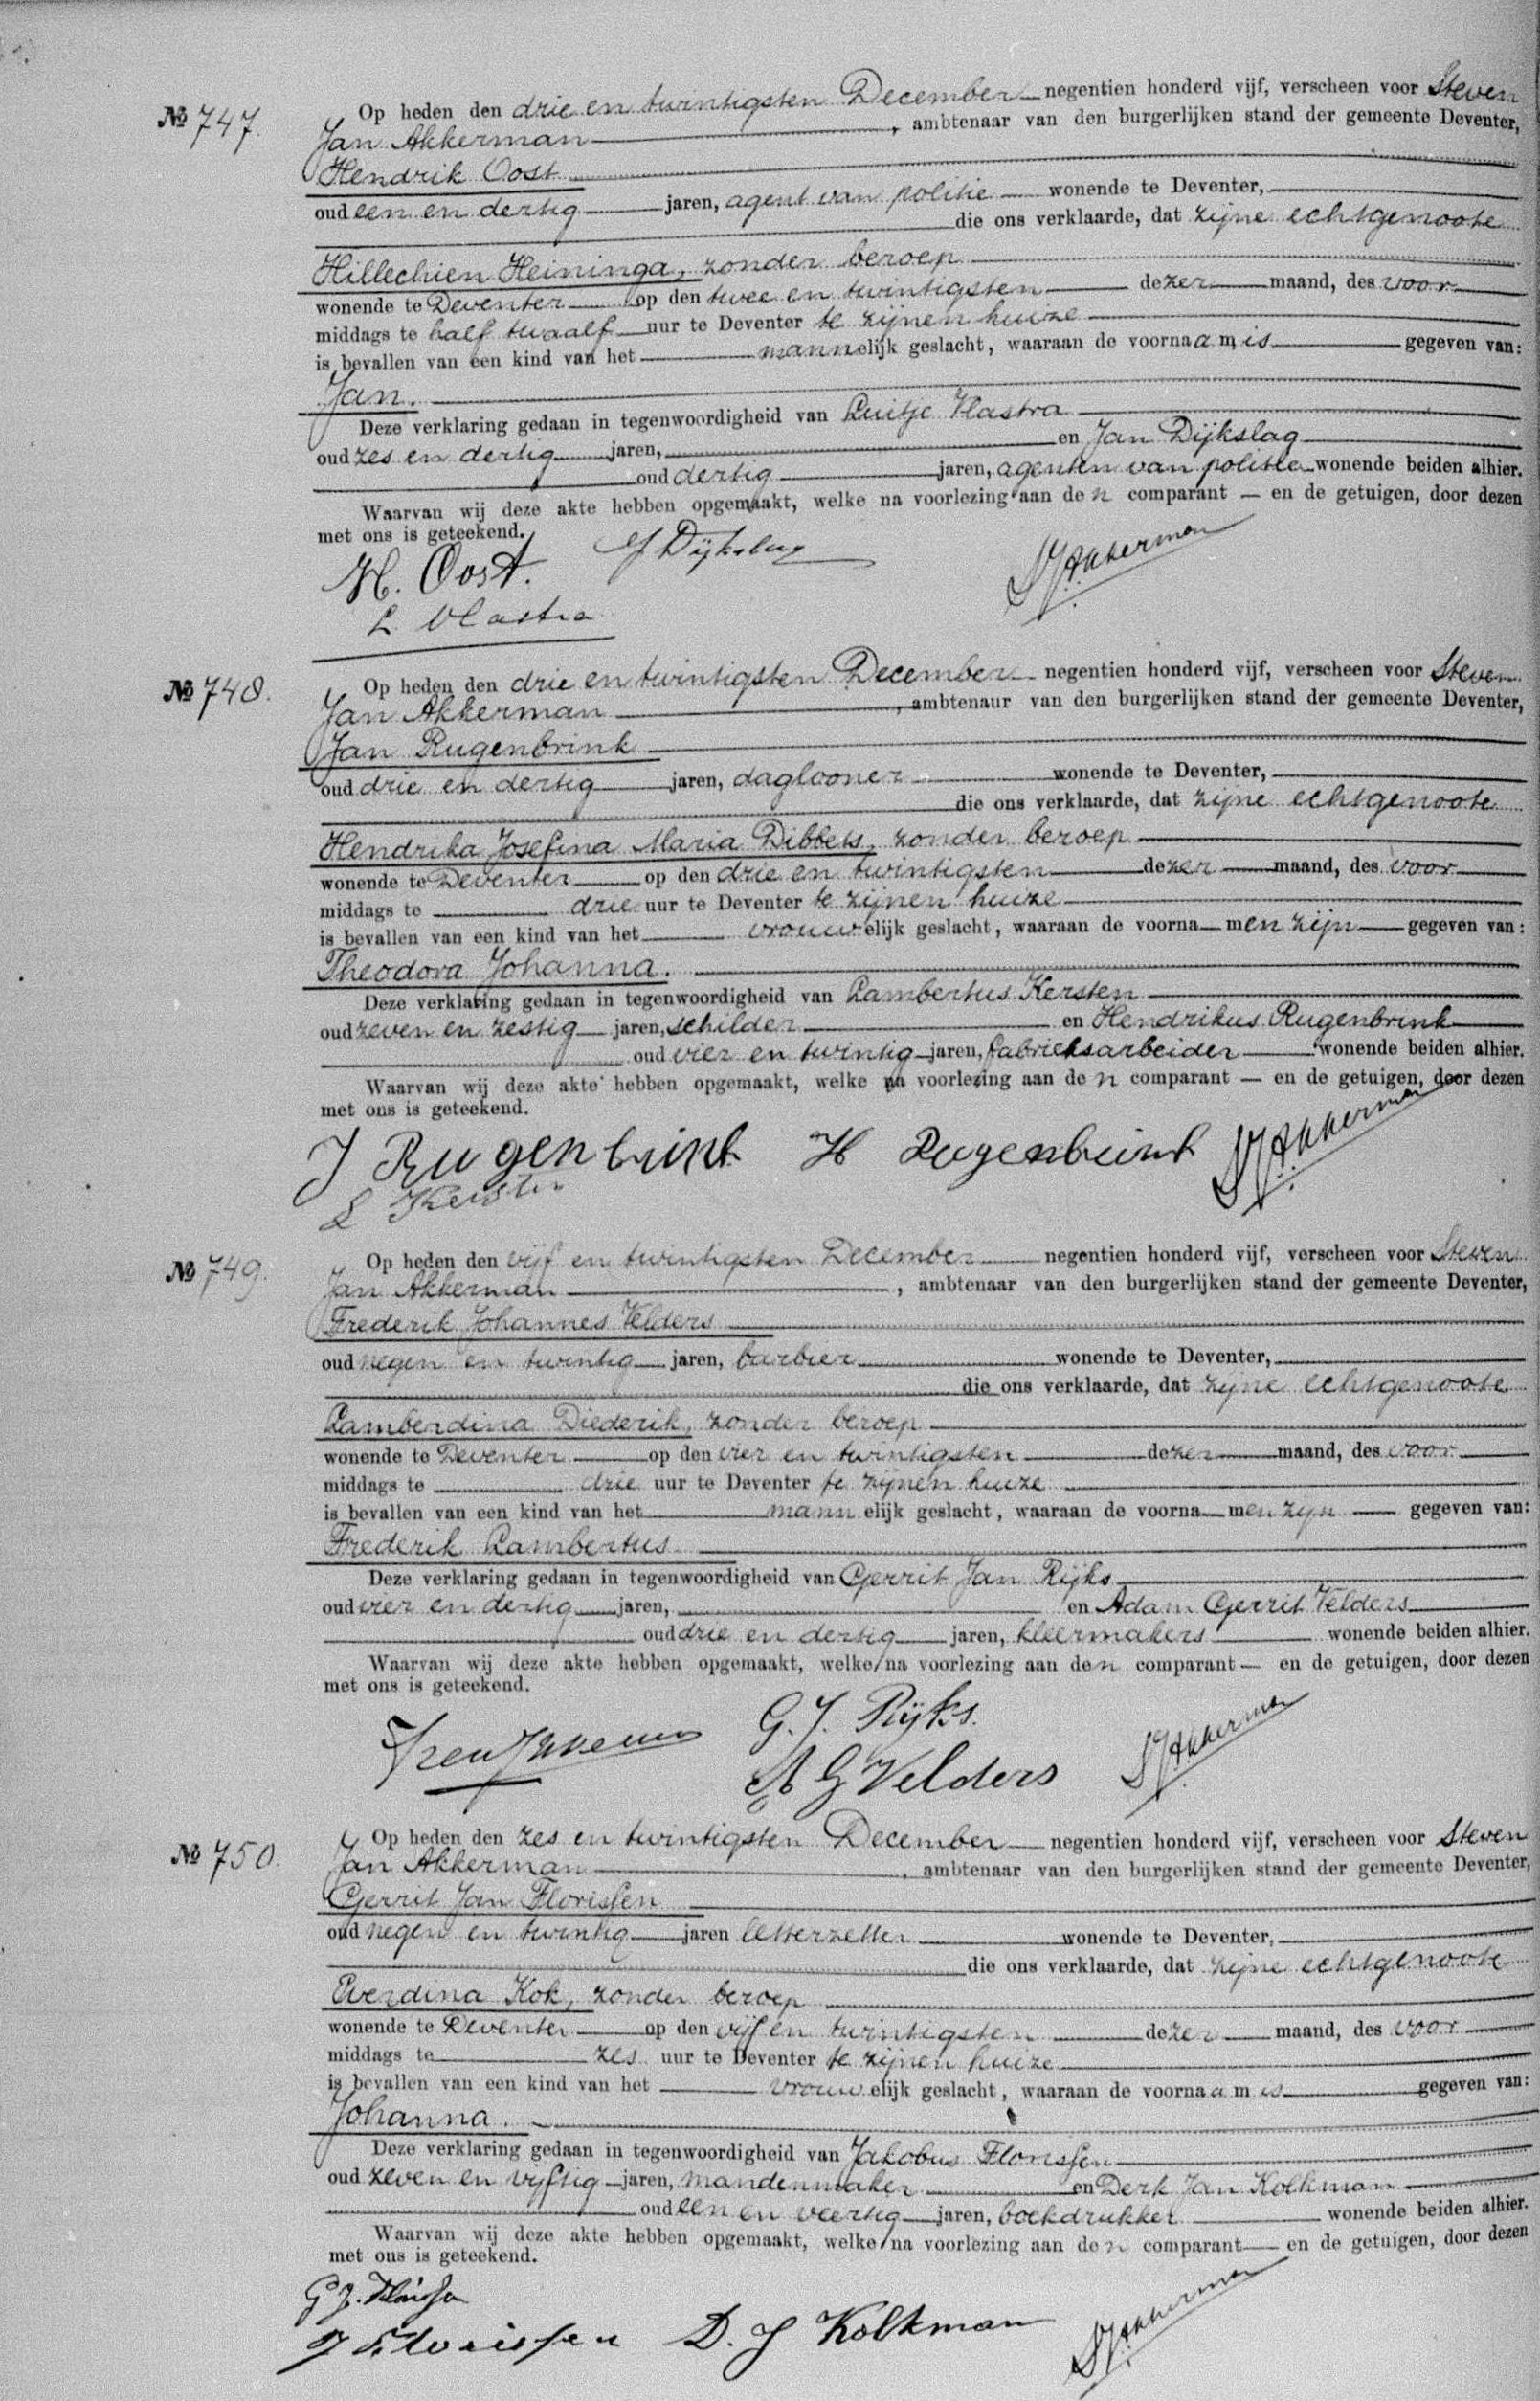 № 747.
Op heden den drie en twintigsten December negentien honderd vijf, verscheen voor Steven
Jan Akkerman, ambtenaar van den burgerlijken stand der gemeente Deventer,
Hendrik Oost
oud een en dertig jaren, agent van politie wonende te Deventer,
die ons verklaarde, dat zijne echtgenoote
Hillechien Heininga, zonder beroep
wonende te Deventer op den twee en twintigsten dezer maand, des voor
middags te half twaalf uur te Deventer te zijnen huize
is bevallen van een kind van het mannelijk geslacht, waaraan de voornaam is gegeven van:
Jan.
Deze verklaring gedaan in tegenwoordigheid van Luitje Vlastra
oud zes en dertig jaren, en Jan Dijkslag
oud dertig jaren, agenten van politie wonende beiden alhier.
Waarvan wij deze akte hebben opgemaakt, welke na voorlezing aan den comparant — en de getuigen, door dezen
met ons is geteekend.
H. Oost. J Dijkslag SJAkkerman
L. Vlastra
№ 748.
Op heden den drie en twintigsten December negentien honderd vijf, verscheen voor Steven
Jan Akkerman, ambtenaar van den burgerlijken stand der gemeente Deventer,
Jan Rugenbrink
oud drie en dertig jaren, daglooner wonende te Deventer,
die ons verklaarde, dat zijne echtgenoote
Hendrika Josefina Maria Dibbets, zonder beroep
wonende te Deventer op den drie en twintigsten dezer maand, des voor
middags te drie uur te Deventer te zijnen huize
is bevallen van een kind van het vrouwelijk geslacht, waaraan de voorna—men zijn gegeven van:
Theodora Johanna.
Deze verklaring gedaan in tegenwoordigheid van Lambertus Kersten
oud zeven en zestig jaren, schilder en Hendrikus Rugenbrink
oud vier en twintig jaren, fabrieksarbeider wonende beiden alhier.
Waarvan wij deze akte hebben opgemaakt, welke na voorlezing aan den comparant — en de getuigen, door dezen
met ons is geteekend.
J Rugenbrink H Rugenbrink SJAkkerman
L Kersten
№ 749.
Op heden den vijf en twintigsten December negentien honderd vijf, verscheen voor Steven
Jan Akkerman, ambtenaar van den burgerlijken stand der gemeente Deventer,
Frederik Johannes Velders
oud negen en twintig jaren, barbier wonende te Deventer,
die ons verklaarde, dat zijne echtgenoote
Lamberdina Diederik, zonder beroep
wonende te Deventer op den vier en twintigsten dezer maand, des voor
middags te drie uur te Deventer te zijnen huize
is bevallen van een kind van het mannelijk geslacht, waaraan de voorna—men zijn gegeven van:
Frederik Lambertus
Deze verklaring gedaan in tegenwoordigheid van Gerrit Jan Rijks
oud vier en dertig jaren, en Adam Gerrit Velders
oud drie en dertig jaren, kleermakers wonende beiden alhier.
Waarvan wij deze akte hebben opgemaakt, welke na voorlezing aan den comparant — en de getuigen, door dezen
met ons is geteekend.
G. J. Rijks. SJAkkerman
A G Velders
№ 750.
Op heden den zes en twintigsten December negentien honderd vijf, verscheen voor Steven
Jan Akkerman, ambtenaar van den burgerlijken stand der gemeente Deventer,
Gerrit Jan Florissen
oud negen en twintig jaren letterzetter wonende te Deventer,
die ons verklaarde, dat zijne echtgenoote
Everdina Kok, zonder beroep
wonende te Deventer op den vijf en twintigsten dezer maand, des voor
middags te zes uur te Deventer te zijnen huize
is bevallen van een kind van het vrouwelijk geslacht, waaraan de voornaam is gegeven van:
Johanna.
Deze verklaring gedaan in tegenwoordigheid van Jakobus Florissen
oud zeven en vijftig jaren, mandenmaker en Derk Jan Kolkman
oud een en veertig jaren, boekdrukker wonende beiden alhier.
Waarvan wij deze akte hebben opgemaakt, welke na voorlezing aan den comparant — en de getuigen, door dezen
met ons is geteekend.
G J. Florissen
J Florissen D. J Kolkman SJAkkerman